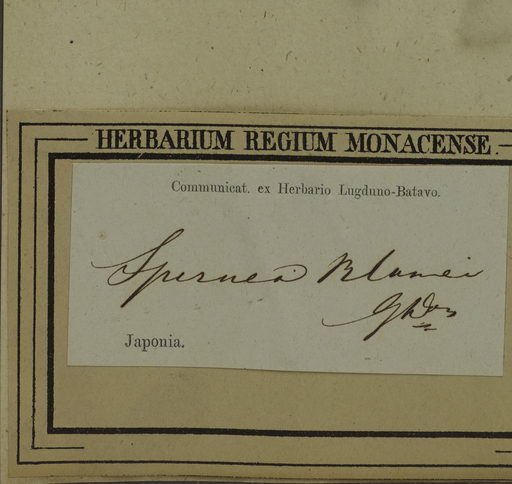 HERBARIUM REGIUM MONACENSE.
Communicat. ex Herbario Lugduno-Batavo.
Spiraea Blumei
Japonia.